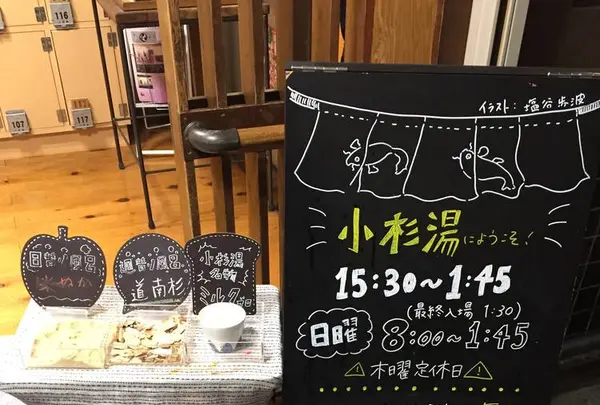 116
107
117
日替り風呂
米ぬか
週替り風呂
道南杉
小杉湯
名物
ミルク
イラスト：塩谷歩波
小杉湯にようこそ！
15:30～1:45
(最終入場 1:30)
日曜 8:00～1:45
木曜定休日